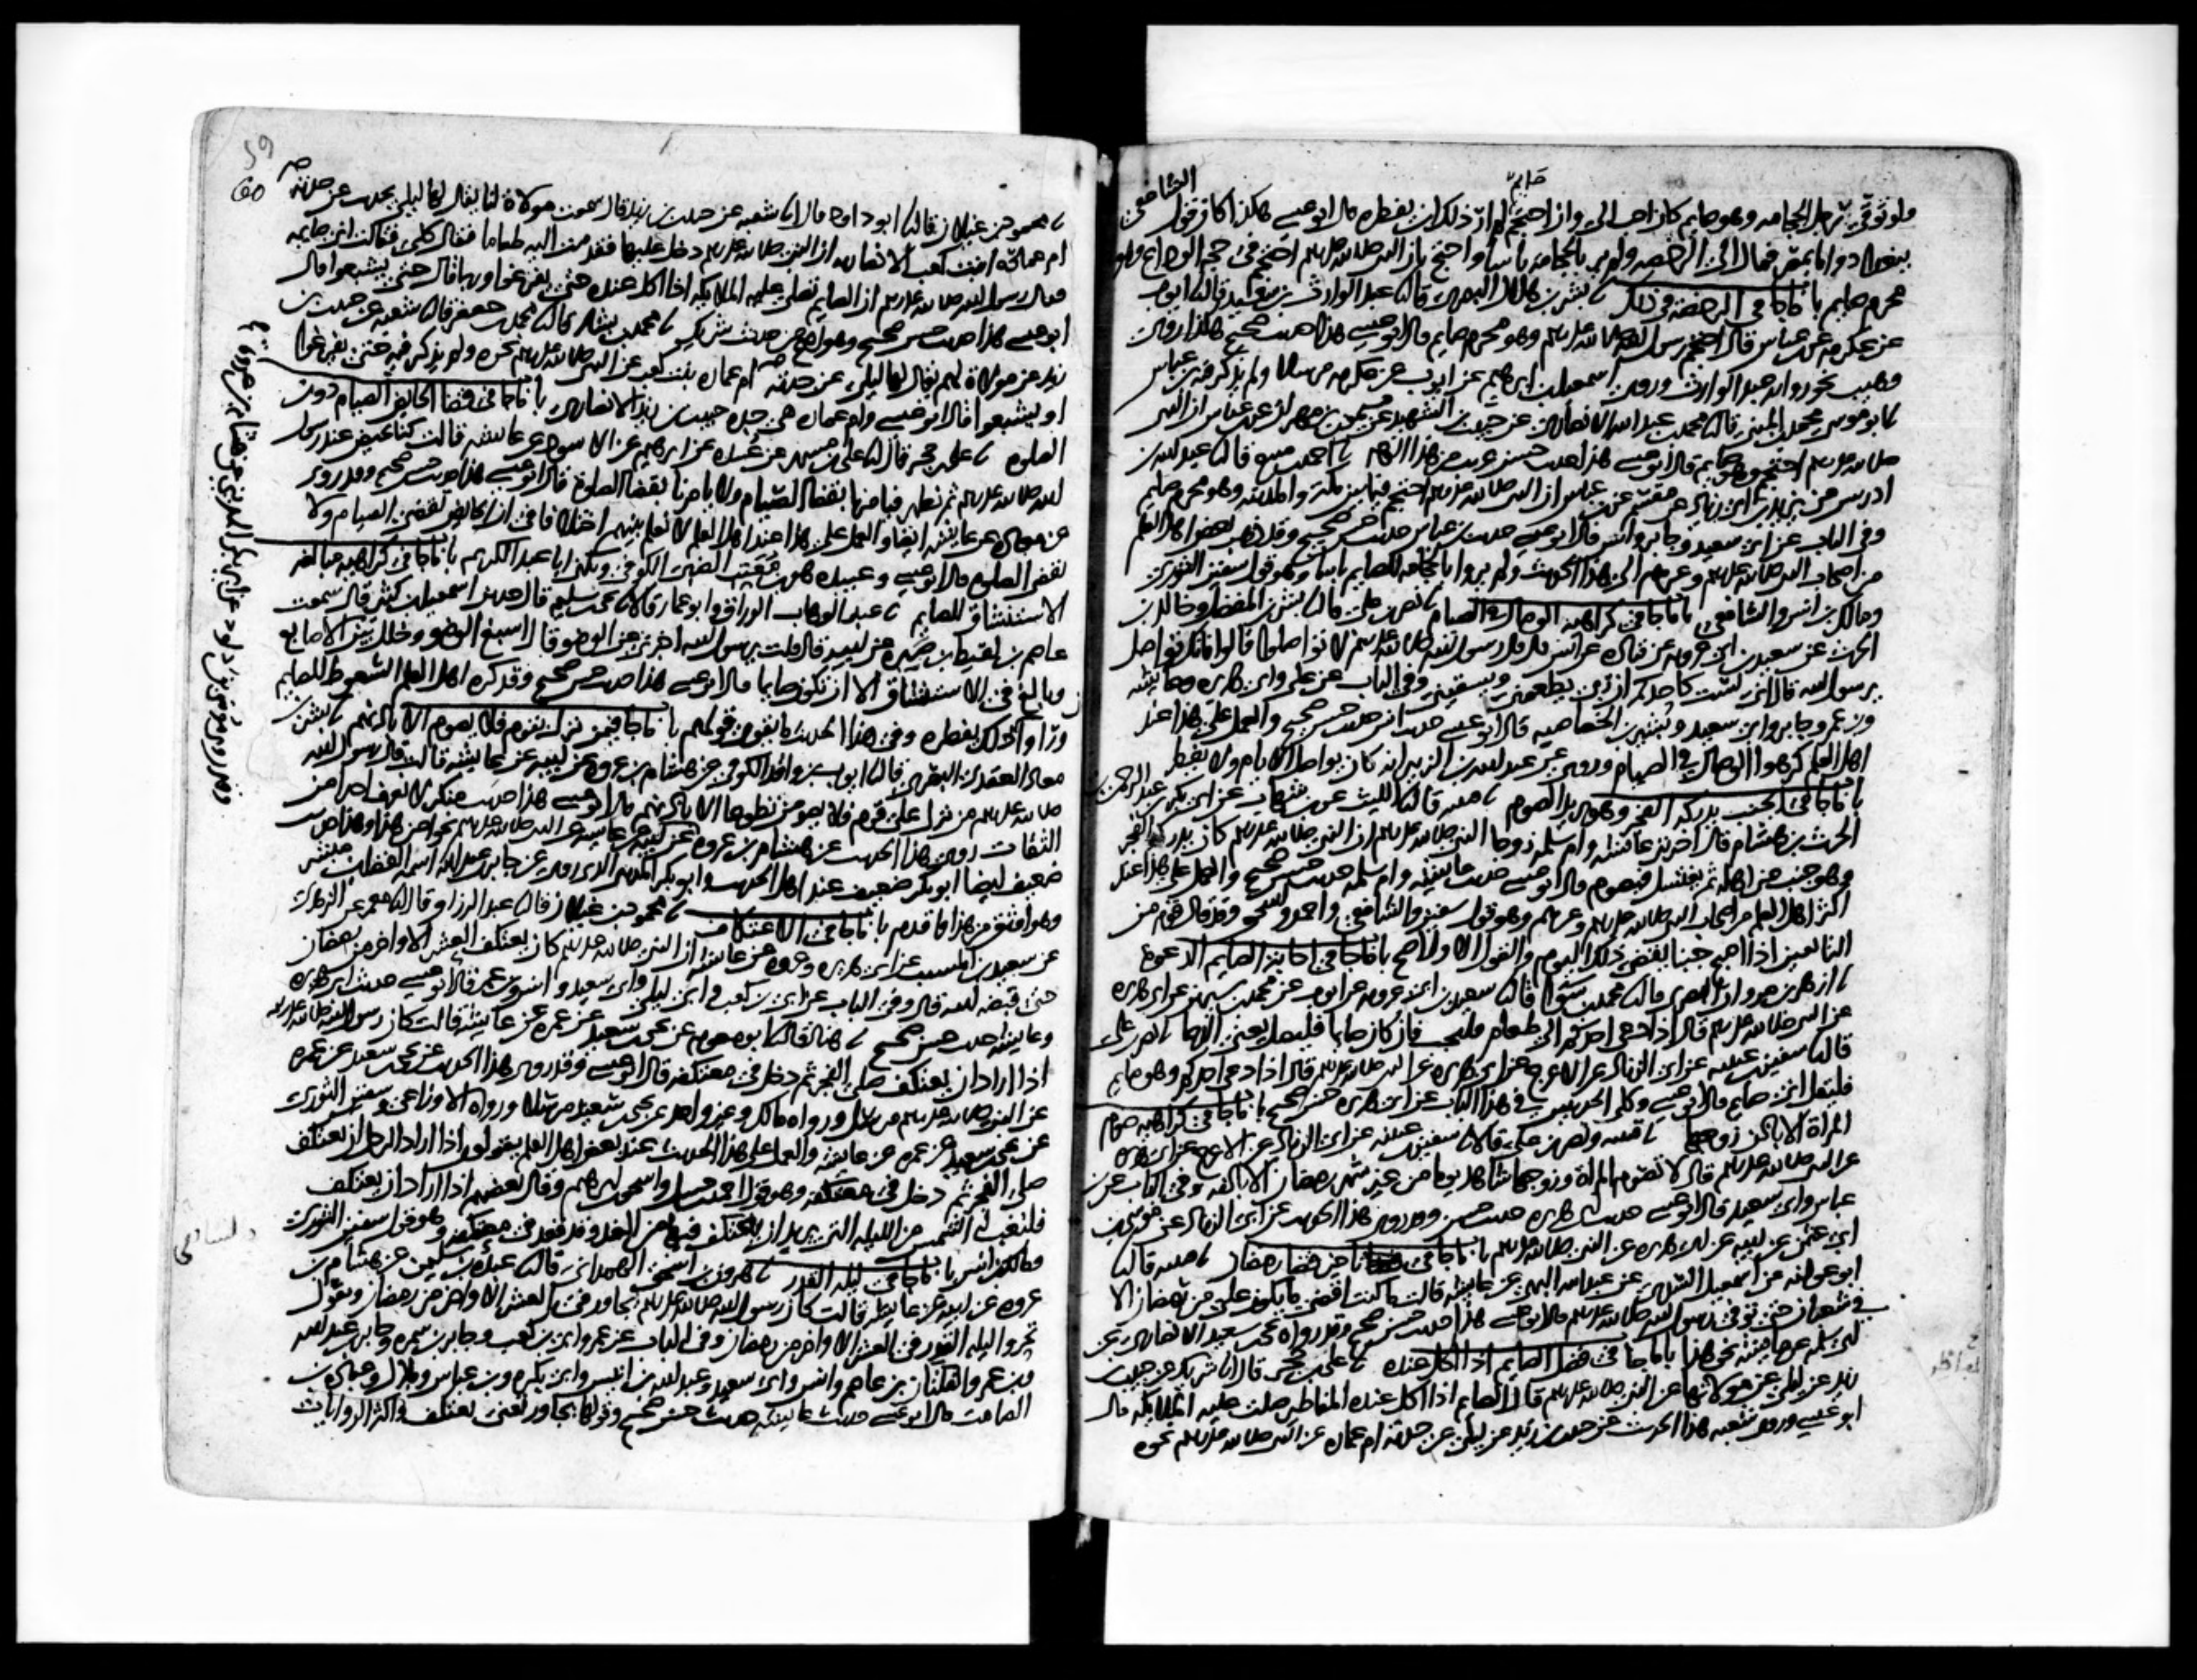 ولو توقى رجل الحجامة وهو صايم كان احب الي وان احتجم صايم لم ار ذلك ان يفطره قال ابو عيسى هكذا كان قول الشافعي
ببغداد واما بمصر فمال الى الرخصة ولم ير بالحجامة باسا واحتج بان النبي صلى الله عليه وسلم احتجم في حجة الوداع وهو
محرم صايم باب ما جا في الرخصة في ذلك ثنا بشر بن هلال البصري قال ثنا عبد الوارث بن سعيد قال ثنا ايوب
عن عكرمة عن ابن عباس قال احتجم رسول الله صلى الله عليه وسلم وهو محرم صايم قال ابو عيسى هذا حديث صحيح هكذا روى
وهيب نحو رواية عبد الوارث وروى اسمعيل بن ابرهيم عن ايوب عن عكرمة مرسلا ولم يذكر فيه ابن عباس
ثنا ابو موسى محمد بن المثنى قال ثنا محمد بن عبد الله الانصاري عن حبيب بن الشهيد عن ميمون بن مهران عن ابن عباس ان النبي
صلى الله عليه وسلم احتجم وهو صايم قال ابو عيسى هذا حديث حسن غريب من هذا الوجه ثنا احمد بن منيع قال ثنا عبد الله بن
ادريس عن يزيد بن ابي زياد عن مقسم عن ابن عباس ان النبي صلى الله عليه وسلم احتجم فيما بين مكة والمدينة وهو محرم صايم
وفي الباب عن ابي سعيد وجابر وانس قال ابو عيسى حديث ابن عباس حديث حسن صحيح وقد ذهب بعض اهل العلم
من اصحاب النبي صلى الله عليه وسلم وغيرهم الى هذا الحديث ولم يروا بالحجامة للصايم باسا وهو قول سفين الثوري
ومالك بن انس والشافعي باب ما جا في كراهية الوصال في الصيام ثنا نصر بن علي قال ثنا بشر بن المفضل وخالد بن
الحرث عن سعيد بن ابي عروبة عن قتادة عن انس قال قال رسول الله صلى الله عليه وسلم لا تواصلوا قالوا فانك تواصل
يرسول الله قال اني لست كاحدكم ان ربي يطعمني ويسقيني وفي الباب عن علي وابي هريرة وعايشة
وابن عمر وجابر وابي سعيد وبشير بن الخصاصية قال ابو عيسى حديث انس حديث حسن صحيح والعمل على هذا عند
اهل العلم كرهوا الوصال في الصيام وروي عن عبد الله بن الزبير انه كان يواصل الايام ولا يفطر
باب ما جا في الجنب يدركه الفجر وهو يريد الصوم ثنا قتيبة قال ثنا الليث عن ابن شهاب عن ابي بكر بن عبد الرحمن بن
الحرث بن هشام قال اخبرتني عايشة وام سلمة زوجا النبي صلى الله عليه وسلم ان النبي صلى الله عليه وسلم كان يدركه الفجر
وهو جنب من اهله ثم يغتسل فيصوم قال ابو عيسى حديث عايشة وام سلمة حديث حسن صحيح والعمل على هذا عند
اكثر اهل العلم من اصحاب النبي صلى الله عليه وسلم وغيرهم وهو قول سفين والشافعي واحمد واسحق وقد قال قوم من
التابعين اذا اصبح جنبا يقضي ذلك اليوم والقول الاول اصح باب ما جا في اجابة الصايم الدعوة
ثنا ازهر بن مروان البصري قال ثنا محمد بن سوا قال ثنا سعيد بن ابي عروبة عن ايوب عن محمد بن سيرين عن ابي هريرة
عن النبي صلى الله عليه وسلم قال اذا دعي احدكم الى طعام فليجب فان كان صايما فليصل يعني الدعا ثنا نصر بن علي
قال ثنا سفين بن عيينة عن ابي الزناد عن الاعرج عن ابي هريرة عن النبي صلى الله عليه وسلم قال اذا دعي احدكم وهو صايم
فليقل اني صايم قال ابو عيسى وكلا الحديثين في هذا الباب عن ابي هريرة حسن صحيح باب ما جا في كراهية صوم
المراة الا باذن زوجها ثنا قتيبة ونصر بن علي قالا ثنا سفين بن عيينة عن ابي الزناد عن الاعرج عن ابي هريرة
عن النبي صلى الله عليه وسلم قال لا تصوم المراة وزوجها شاهد يوما من غير شهر رمضان الا باذنه وفي الباب عن ابن
عباس وابي سعيد قال ابو عيسى حديث ابي هريرة حديث حسن وقد روي هذا الحديث عن ابي الزناد عن موسى بن
ابي عثمن عن ابيه عن ابي هريرة عن النبي صلى الله عليه وسلم باب ما جا في تاخير قضا رمضان ثنا قتيبة قال ثنا
ابو عوانة عن اسمعيل السدي عن عبد الله البهي عن عايشة قالت ما كنت اقضي ما يكون علي من رمضان الا
في شعبان حتى توفي رسول الله صلى الله عليه وسلم قال ابو عيسى هذا حديث حسن صحيح وقد رواه يحيى بن سعيد الانصاري عن
ابي سلمة عن عايشة نحو هذا باب ما جا في فضل الصايم اذا اكل عنده ثنا علي بن حجر قال انا شريك عن حبيب بن
زيد عن ليلى عن مولاتها عن النبي صلى الله عليه وسلم قال الصايم اذا اكل عنده المفاطير صلت عليه الملايكة قال
ابو عيسى وروى شعبة هذا الحديث عن حبيب بن زيد عن ليلى عن جدته ام عمارة عن النبي صلى الله عليه وسلم نحوه
59
60
ثنا محمود بن غيلان قال ثنا ابو داود قال انا شعبة عن حبيب بن زيد قال سمعت مولاة لنا يقال لها ليلى تحدث عن جدته
ام عمارة ابنت كعب الانصارية ان النبي صلى الله عليه وسلم دخل عليها فقدمت اليه طعاما فقال كلي فقالت اني صايمة
فقال رسول الله صلى الله عليه وسلم ان الصايم تصلي عليه الملايكة اذا اكل عنده حتى يفرغوا وربما قال حتى يشبعوا قال
ابو عيسى هذا حديث حسن صحيح وهو اصح من حديث شريك ثنا محمد بن بشار قال ثنا محمد بن جعفر قال ثنا شعبة عن حبيب بن
زيد عن مولاة لهم يقال لها ليلى عن جدته ام عمارة بنت كعب عن النبي صلى الله عليه وسلم نحوه ولم يذكر فيه حتى يفرغوا
او يشبعوا قال ابو عيسى وام عمارة هي جدة حبيب بن زيد الانصاري باب ما جا في قضا الحايض الصيام دون
الصلوة ثنا علي بن حجر قال انا علي بن مسهر عن عبيدة عن ابرهيم عن الاسود عن عايشة قالت كنا نحيض عند رسول
الله صلى الله عليه وسلم ثم نطهر فيامرنا بقضا الصيام ولا يامرنا بقضا الصلوة قال ابو عيسى هذا حديث حسن صحيح وقد روي
عن معاذة عن عايشة ايضا والعمل على هذا عند اهل العلم لا نعلم بينهم اختلافا في ان الحايض تقضي الصيام ولا
تقضي الصلوة قال ابو عيسى وعبيدة هو ابن معتب الضبي الكوفي ويكنى ابا عبد الكريم باب ما جا في كراهية مبالغة
الاستنشاق للصايم ثنا عبد الوهاب الوراق وابو عمار قالا ثنا يحيى بن سليم قال حدثني اسمعيل بن كثير قال سمعت
عاصم بن لقيط بن صبرة عن ابيه قال قلت يرسول الله اخبرني عن الوضو قال اسبغ الوضو وخلل بين الاصابع
وبالغ في الاستنشاق الا ان تكون صايما قال ابو عيسى هذا حديث حسن صحيح وقد كره اهل العلم السعوط للصايم
وراوا ان ذلك يفطره وفي هذا الحديث ما يقوي قولهم باب ما جا فيمن نزل بقوم فلا يصوم الا باذنهم ثنا بشر بن
معاذ العقدي البصري قال ثنا ايوب بن واقد الكوفي عن هشام بن عروة عن ابيه عن عايشة قالت قال رسول الله
صلى الله عليه وسلم من نزل على قوم فلا يصومن تطوعا الا باذنهم قال ابو عيسى هذا حديث منكر لا نعرف احدا من
الثقات روى هذا الحديث عن هشام بن عروة عن ابيه عن عايشة عن النبي صلى الله عليه وسلم نحوا من هذا وهذا حديث
ضعيف ايضا ابو بكر ضعيف عند اهل الحديث وابو بكر المديني الذي روى عن جابر بن عبد الله اسمه الفضل بن مبشر
وهو اوثق من هذا واقدم باب ما جا في الاعتكاف ثنا محمود بن غيلان قال ثنا عبد الرزاق قال انا معمر عن الزهري
عن سعيد بن المسيب عن ابي هريرة وعروة عن عايشة ان النبي صلى الله عليه وسلم كان يعتكف العشر الاواخر من رمضان
حتى قبضه الله قال وفي الباب عن ابي بن كعب وابي ليلى وابي سعيد وانس وابن عمر قال ابو عيسى حديث ابي هريرة
وعايشة حديث حسن صحيح ثنا هناد قال ثنا ابو معوية عن يحيى بن سعيد عن عمرة عن عايشة قالت كان رسول الله صلى الله عليه وسلم
اذا اراد ان يعتكف صلى الفجر ثم دخل في معتكفه قال ابو عيسى وقد روي هذا الحديث عن يحيى بن سعيد عن عمرة
عن النبي صلى الله عليه وسلم مرسل ورواه مالك وغير واحد عن يحيى بن سعيد مرسلا ورواه الاوزاعي وسفين الثوري
عن يحيى بن سعيد عن عمرة عن عايشة والعمل على هذا الحديث عند بعض اهل العلم يقولون اذا اراد الرجل ان يعتكف
صلى الفجر ثم دخل في معتكفه وهو قول احمد بن حنبل واسحق بن ابرهيم وقال بعضهم اذا اراد ان يعتكف
فلتغب له الشمس من الليلة التي يريد ان يعتكف فيها من الغد وقد قعد في معتكفه وهو قول سفين الثوري
ومالك بن انس باب ما جا في ليلة القدر ثنا هرون بن اسحق الهمداني قال ثنا عبدة بن سليمن عن هشام بن
عروة عن ابيه عن عايشة قالت كان رسول الله صلى الله عليه وسلم يجاور في العشر الاواخر من رمضان ويقول
تحروا ليلة القدر في العشر الاواخر من رمضان وفي الباب عن عمر وابي بن كعب وجابر بن سمرة وجابر بن عبد الله
وابن عمر والفلتان بن عاصم وانس وابي سعيد وعبد الله بن انيس وابي بكرة وابن عباس وبلال وعبادة بن
الصامت قال ابو عيسى حديث عايشة حديث حسن صحيح وقولها يجاور تعني يعتكف واكثر الروايات
وقد روى موسى بن داود عن ابي بكر المديني عن هشام بن عروة